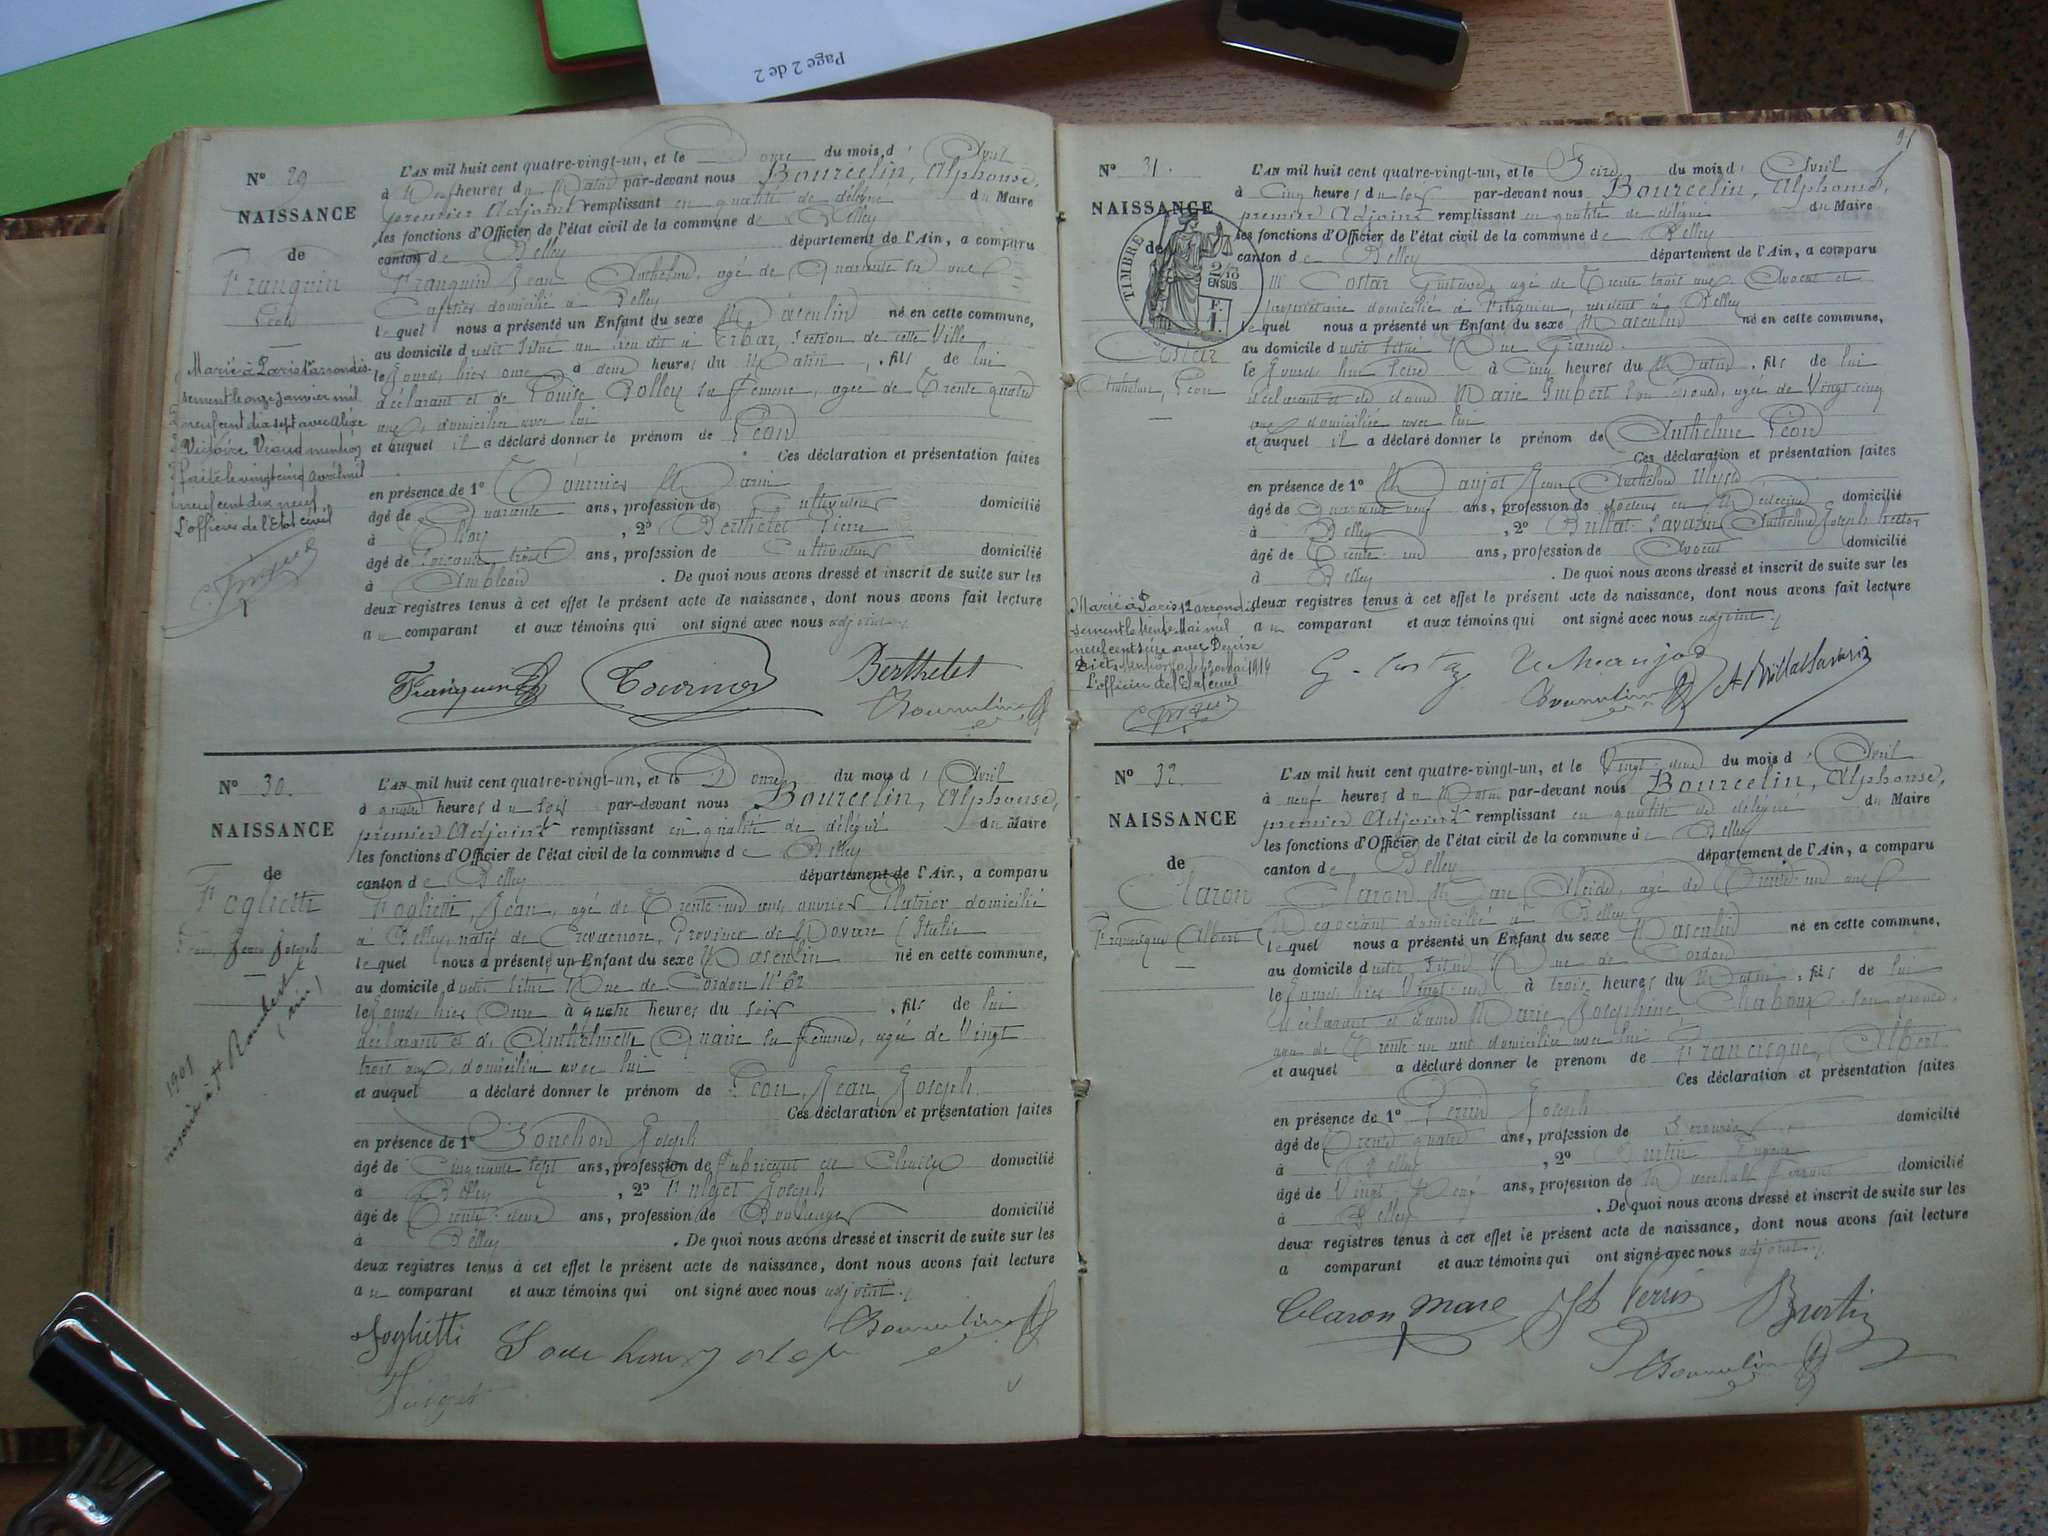 Page 2 de 2
N° 29
NAISSANCE
de
Franquin
Léon
Marié à Paris 1er arrondis-
sement le onze janvier mil
neuf cent dix sept avec Alixe
Victoire Viaud mention
faite le vingt cinq avril mil
neuf cent dix neuf
L'officier de l'Etat civil
L'AN mil huit cent quatre-vingt-un, et le onze du mois d'Avril
à Neuf heures du Matin par-devant nous Bourcelin, Alphonse,
premier Adjoint remplissant en qualité de délégué du Maire
les fonctions d'Officier de l'état civil de la commune de Belley
canton de Belley département de l'Ain, a comparu
Franquin Jean Anthelme, agé de Quarante six ans
Cafetier domicilié à Belley
lequel nous a présenté un Enfant du sexe Masculin né en cette commune,
au domicile dudit situé au lieu dit à Erbaz, Section de cette Ville
le jourd'hier onze à deux heures du Matin, fils de lui
déclarant et de Louise Polley sa femme, agée de Trente quatre
ans, domiciliée avec lui
et auquel il a déclaré donner le prénom de Léon
Ces déclaration et présentation faites
en présence de 1° Tournier Marin
âgé de Quarante ans, profession de Cultivateur domicilié
à , 2° Berthelet Pierre
âgé de Soixante trois ans, profession de Cultivateur domicilié
à Ambléon. De quoi nous avons dressé et inscrit de suite sur les
deux registres tenus à cet effet le présent acte de naissance, dont nous avons fait lecture
au comparant et aux témoins qui ont signé avec nous adjoint.
Franquin Tournier Berthelet
Bourcelin
N° 30.
NAISSANCE
de
Foglietti
Léon Jean Joseph
1901
inscrit à St Rambert
(Ain)
L'AN mil huit cent quatre-vingt-un, et le Douze du mois d'Avril
à quatre heures du soir par-devant nous Bourcelin, Alphonse,
premier Adjoint remplissant en qualité de délégué du Maire
les fonctions d'Officier de l'état civil de la commune de Belley
canton de Belley département de l'Ain, a comparu
Foglietti, Jean, agé de Trente un ans, ouvrier Platrier domicilié
à Belley, natif de Crevacuore, Province de Novare (Italie
lequel nous a présenté un Enfant du sexe Masculin né en cette commune,
au domicile dudit situé Rue de Cordon N° 62
le jourd'hier Onze à quatre heures du soir, fils de lui
déclarant et de Anthelmette sa femme, agée de Vingt
trois ans, domiciliée avec lui
et auquel a déclaré donner le prénom de Léon, Jean, Joseph.
Ces déclaration et présentation faites
en présence de 1° Souchon Joseph
âgé de Cinquante sept ans, profession de Fabricant de domicilié
à Belley, 2° Joseph
âgé de Trente deux ans, profession de Boulanger domicilié
à Belley. De quoi nous avons dressé et inscrit de suite sur les
deux registres tenus à cet effet le présent acte de naissance, dont nous avons fait lecture
au comparant et aux témoins qui ont signé avec nous adjoint.
Foglietti Souchon Joseph Bourcelin
91
N° 31.
NAISSANCE
de
TIMBRE
2/10
EN SUS
F.
1.
Costaz
Anthelme, Léon
Marié à Paris 12 arrondis-
sement le trente Mai mil
neuf cent seize avec Denise
L'officier de l'Etat civil
L'AN mil huit cent quatre-vingt-un, et le Seize du mois d'Avril
à Cinq heures du soir par-devant nous Bourcelin, Alphonse,
premier Adjoint remplissant en qualité de délégué du Maire
les fonctions d'Officier de l'état civil de la commune de Belley
canton de Belley département de l'Ain, a comparu
Mr Costaz Gustave, agé de Trente trois ans, Avocat et
propriétaire domicilié à Virignin, résident à Belley
lequel nous a présenté un Enfant du sexe Masculin né en cette commune,
au domicile dudit situé Rue Grande.
le jourd'hui seize à Cinq heures du Matin, fils de lui
déclarant et de dame Marie Imbert son épouse, agée de Vingt cinq
ans domiciliée avec lui
et auquel il a déclaré donner le prénom de Anthelme Léon
Ces déclaration et présentation faites
en présence de 1° Maujot Jean Anthelme Ulysse
âgé de Quarante neuf ans, profession de docteur en Médecine domicilié
à Belley, 2° Brillat-Savarin Anthelme Joseph Hector
âgé de Trente un ans, profession de Avocat domicilié
à Belley. De quoi nous avons dressé et inscrit de suite sur les
deux registres tenus à cet effet le présent acte de naissance, dont nous avons fait lecture
au comparant et aux témoins qui ont signé avec nous adjoint.
G. Costaz
Bourcelin A. Brillat Savarin
N° 32.
NAISSANCE
de
Claron
Francisque Albert
L'AN mil huit cent quatre-vingt-un, et le Vingt-deux du mois d'Avril
à neuf heures du Matin par-devant nous Bourcelin, Alphonse,
premier Adjoint remplissant en qualité de délégué du Maire
les fonctions d'Officier de l'état civil de la commune de Belley
canton de Belley département de l'Ain, a comparu
Claron Marc Alcide, agé de Trente-un ans
Négociant domicilié à Belley
lequel nous a présenté un Enfant du sexe Masculin né en cette commune,
au domicile dudit situé Rue de Cordon
le jourd'hier Vingt-un à trois heures du Matin, fils de lui
déclarant et dame Marie, Joséphine, Chaboux son épouse,
agée de Trente un ans domiciliée avec lui
et auquel a déclaré donner le prénom de Francisque, Albert.
Ces déclaration et présentation faites
en présence de 1° Perrin Joseph
âgé de Trente quatre ans, profession de Serrurier domicilié
à Belley, 2° Burtin
âgé de Vingt Neuf ans, profession de Maréchal Ferrant domicilié
à Belley. De quoi nous avons dressé et inscrit de suite sur les
deux registres tenus à cet effet le présent acte de naissance, dont nous avons fait lecture
a comparant et aux témoins qui ont signé avec nous adjoint.
Claron Marc Jh Perrin Burtin
Bourcelin